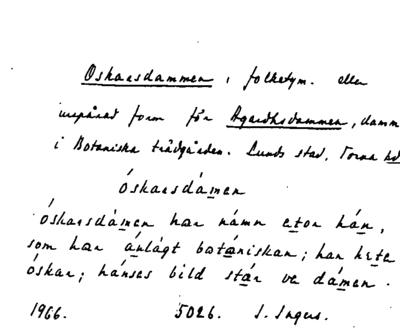 Oskarsdammen, folketym. eller
inspirerad form för Agardhsdammen, damm
i Botaniska trädgården. Lunds stad, Torna hd
óskarsdámen
óskarsdámen har námn etor hán,
som har ánlágt botániskan; han hete
óskar; hánses bild stár ve dámen.
1966. 5026. I. Ingers.